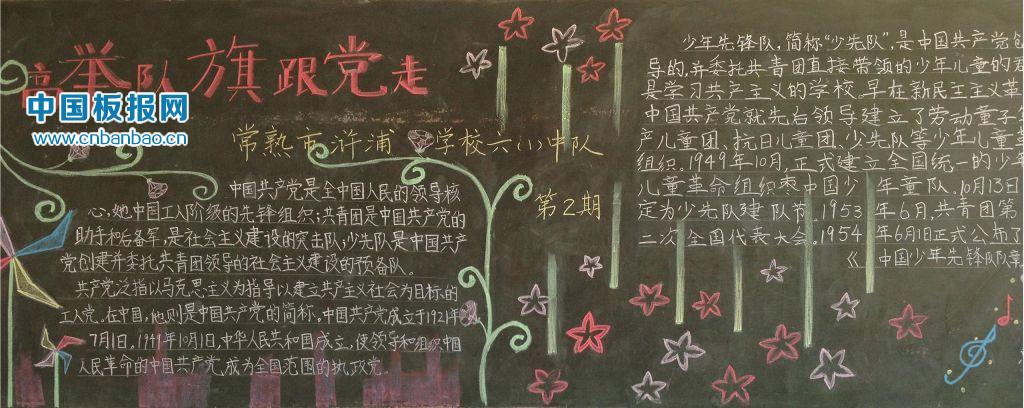 高举队旗跟党走
中国板报网
www.cnbanbao.cn
常熟市浒浦学校六(1)中队
第2期
中国共产党是全中国人民的领导核
心,她中国工人阶级的先锋组织;共青团是中国共产党的
助手和后备军,是社会主义建设的突击队;少先队是中国共产
党创建并委托共青团领导的社会主义建设的预备队。
共产党泛指以马克思主义为指导以建立共产主义社会为目标的
工人党。在中国,他则是中国共产党的简称。中国共产党成立于1921年
7月1日,1949年10月1日,中华人民共和国成立,使领导和组织中国
人民革命的中国共产党,成为全国范围的执政党。
少年先锋队,简称"少先队",是中国共产党创
导的,并委托共青团直接带领的少年儿童的
是学习共产主义的学校。早在新民主主义革
中国共产党就先后领导建立了劳动童子
产儿童团、抗日儿童团、少先队等少年儿童革
组织。1949年10月,正式建立全国统一的少年
儿童革命组织 中国少年童队,10月13日
定为少先队建队节。1953年6月,共青团第
二次全国代表大会。1954年6月1日正式公布了
《中国少年先锋队队章